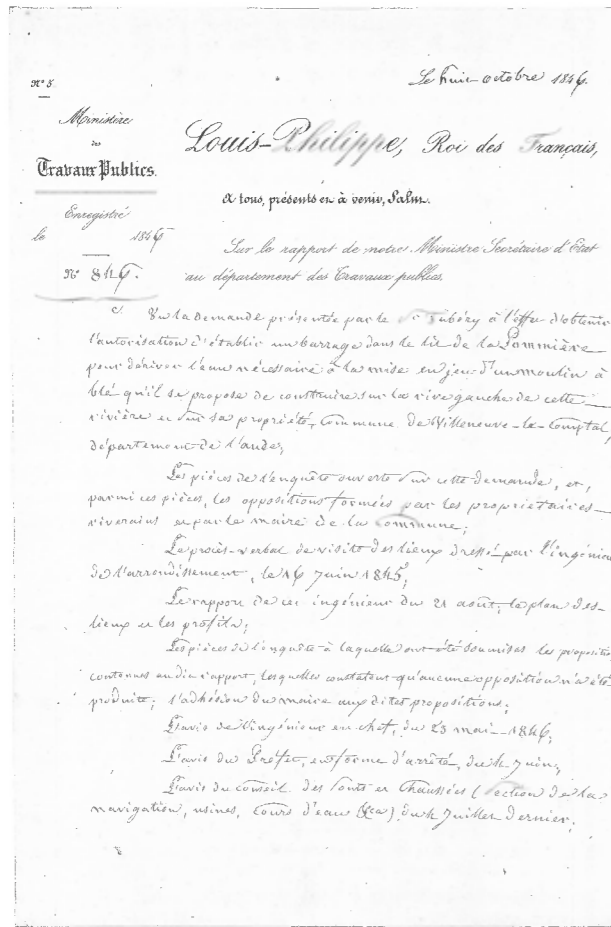 Le huit octobre 1846.
N° 5
Ministère
des
Travaux Publics.
Louis-Philippe, Roi des Français,
A tous, présents et à venir, Salut.
Enregistré
le 1846
N° 846.
Sur le rapport de notre Ministre Secrétaire d'Etat
au département des Travaux publics,
Vu la demande présentée par le Sr Aubéry à l'effet d'obtenir
l'autorisation d'établir un barrage dans le lit de la
pour dériver l'eau nécessaire à la mise en jeu d'un moulin à
blé qu'il se propose de construire sur la rive gauche de cette
rivière et sur sa propriété, commune de Villeneuve-la-Comptal,
département de l'aude;
Les pièces de l'enquête ouverte sur cette demande, et,
parmi ces pièces, les oppositions formées par les propriétaires
riverains et par le maire de la commune;
Le procès-verbal de visite des lieux dressé par l'ingénieu
de l'arrondissement, le 16 Juin 1845;
Le rapport de cet ingénieur du 21 août, le plan des
lieux et les profils;
Les pièces de l'enquête à laquelle ont été soumises les propositio
contenues au dit rapport, lesquelles constatent qu'aucune opposition n'a été
produite; l'adhésion du maire aux dites propositions;
L'avis de l'ingénieur en chef, du 23 mai 1846;
L'avis du Préfet, en forme d'arrêté, du 4 Juin;
L'avis du conseil des Ponts et Chaussées (Section de la
navigation, usines, cours d'eau &ca) du 4 Juillet dernier;